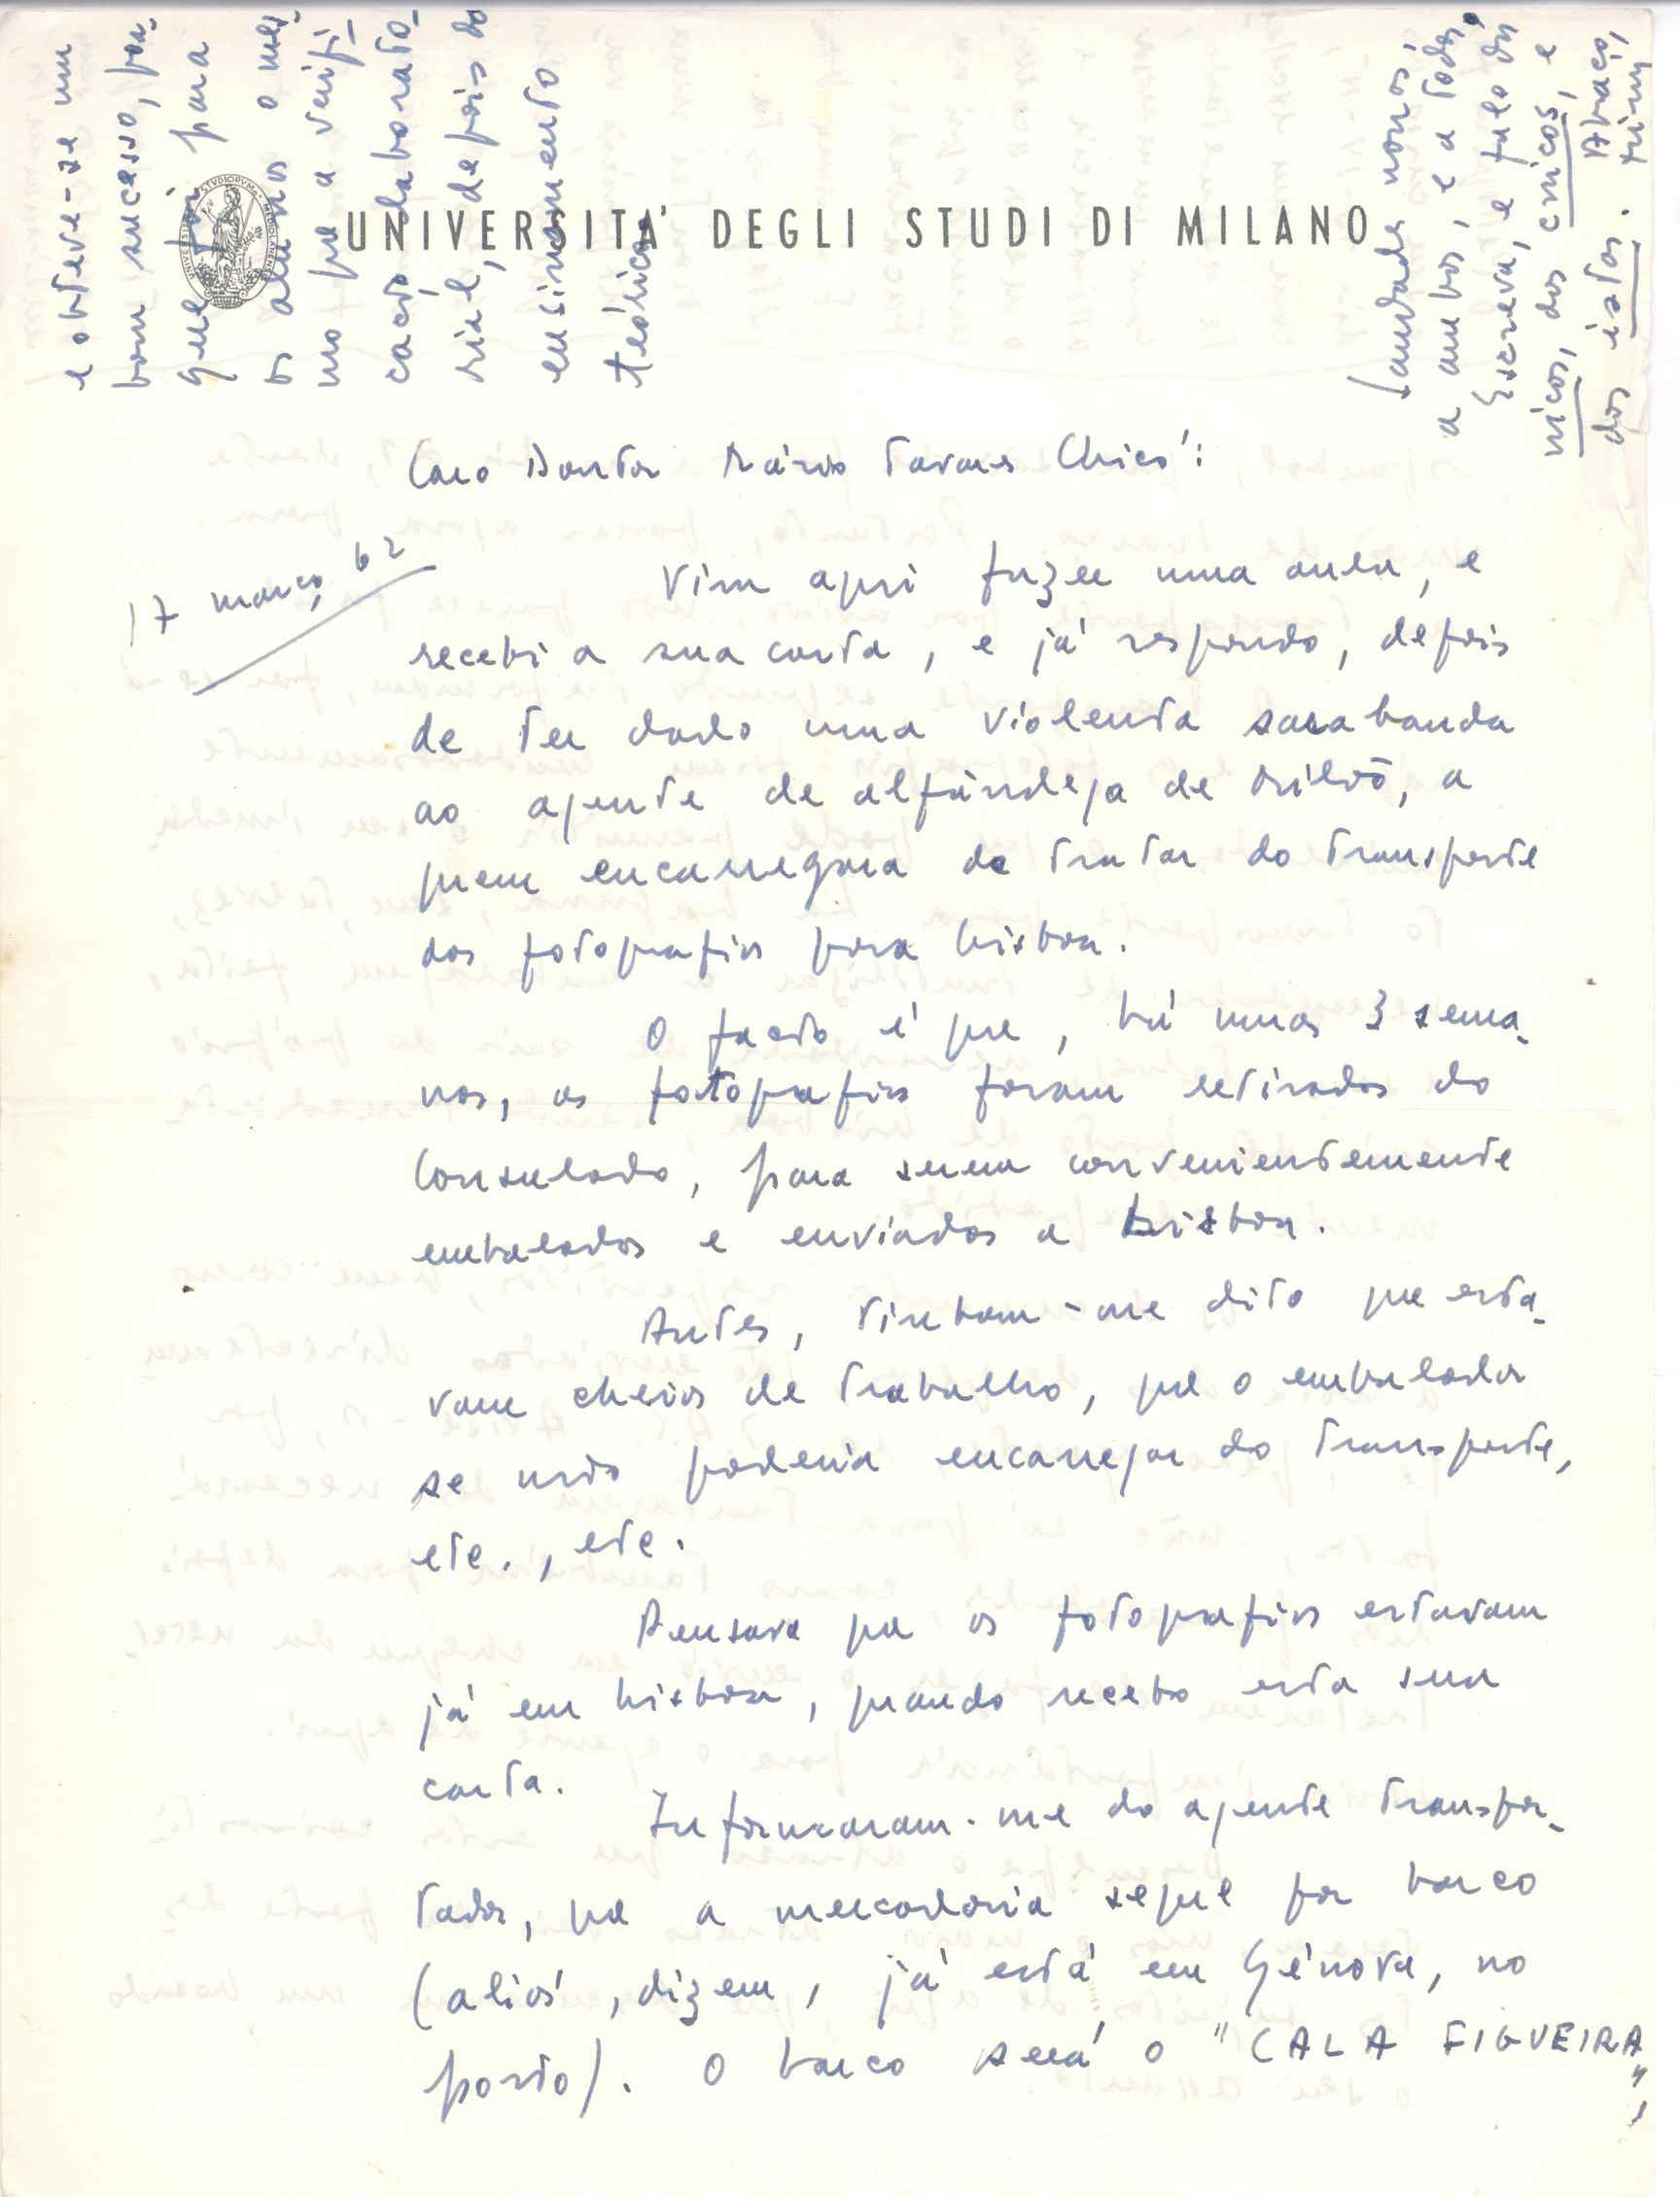 UNIVERSITA' DEGLI STUDI DI MILANO
Caro Doutor Mário Tavares Chicó:
17 março 62
Vim aqui fazer uma aula, e
recebi a sua carta, e já respondo, depois
de ter dado uma violenta sarabanda
ao agente de alfândega de Milão, a
quem encarregara de tratar do transporte
das fotografias para Lisboa.
O facto é que, há umas 3 sema-
nas, as fotografias foram retiradas do
Consulado, para serem convenientemente
embaladas e enviadas a Lisboa.
Antes, tinham-me dito que esta-
vam cheios de trabalho, que o embalador
se não poderia encarregar do transporte,
etc., etc.
Pensava que as fotografias estavam
já em Lisboa, quando recebo esta sua
carta.
Informaram-me do agente transpor-
tador, que a mercadoria segue por barco
(aliás, dizem, já está em Génova, no
porto). O barco será o "CALA FIGUEIRA",
e obteve-se um
bom sucesso, por-
que foi para
os alunos o mes-
mo que a verifi-
cação laborato-
rial, depois do
ensinamento
teórico.
Saudades nossas,
a ambos, e a todos.
Escreva, e fale dos
nicos, dos cnicos, e
dos istas. Abraço,